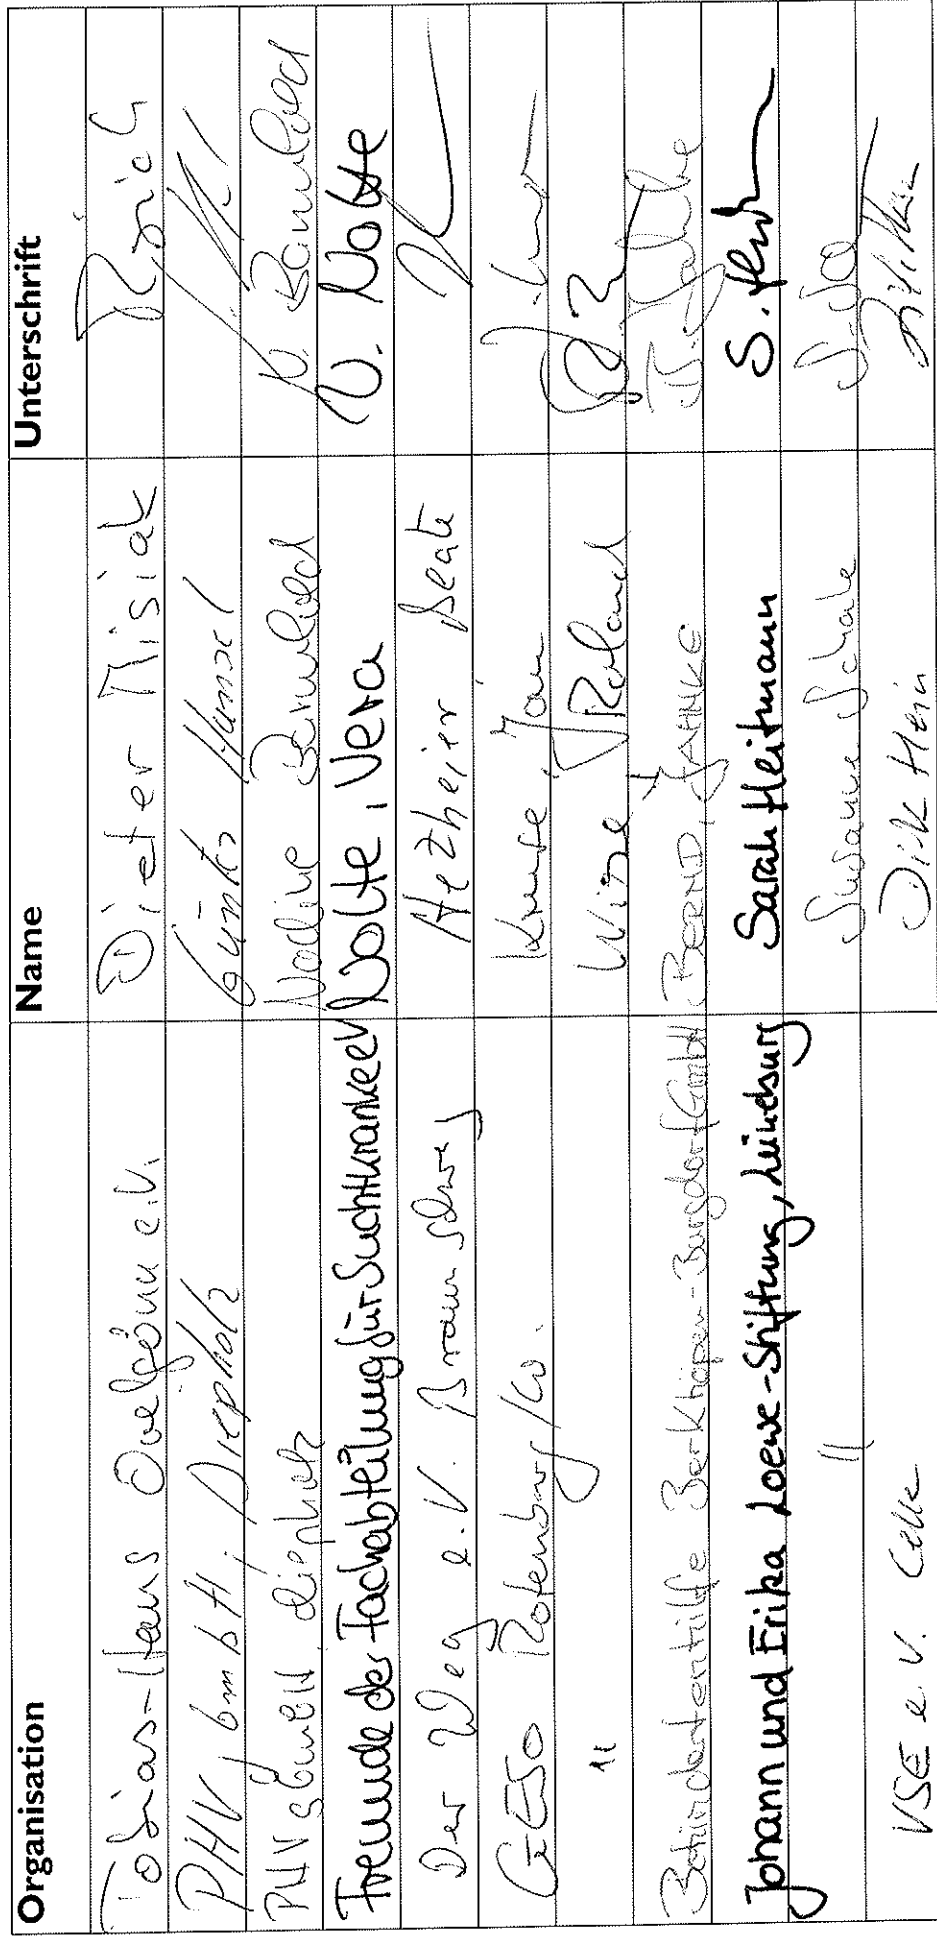 Organisation Name Unterschrift
Tobias-Haus Ovelgönne e.V. Dieter Misiak
PHV, GmbH, Diepholz Günter Hänsel
PHV gGmbH, diepholz Nadine Barnwold N. Barnwold
Freunde der Fachabteilung für Suchtkranke eV Nolte, Vera V. Nolte
Der Weg e.V. Braunschweig Hetzheier Beate
GESO Rotenburg/W. Kruse, Jan
" Roland
Behindertenhilfe Berkhöpen-Burgdorf GmbH BERND, JAHNKE B. Jahnke
Johann und Erika Loewe-Stiftung, Lüneburg Sarah Heitmann S.
" Susanne Schale
VSE e.V. Celle Dirk Hein